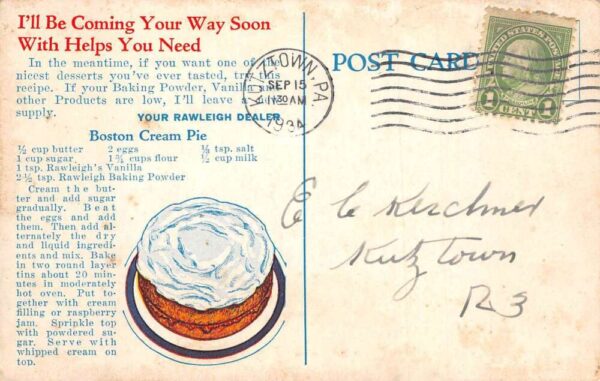 I'll Be Coming Your Way Soon
With Helps You Need
In the meantime, if you want one of the
nicest desserts you've ever tasted, try this
recipe. If your Baking Powder, Vanilla and
other Products are low, I'll leave a new
supply.
YOUR RAWLEIGH DEALER
Boston Cream Pie
½ cup butter 2 eggs ⅛ tsp. salt
1 cup sugar 1¾ cups flour ½ cup milk
1 tsp. Rawleigh's Vanilla
2½ tsp. Rawleigh Baking Powder
Cream the but-
ter and add sugar
gradually. Beat
the eggs and add
them. Then add al-
ternately the dry
and liquid ingredi-
ents and mix. Bake
in two round layer
tins about 20 min-
utes in moderately
hot oven. Put to-
gether with cream
filling or raspberry
jam. Sprinkle top
with powdered su-
gar. Serve with
whipped cream on
top.
KUTZTOWN, PA.
SEP 15
11 30 AM
POST CARD
UNITED STATES POSTAGE
1 CENT 1
E C Kerchner
Kutztown
R3